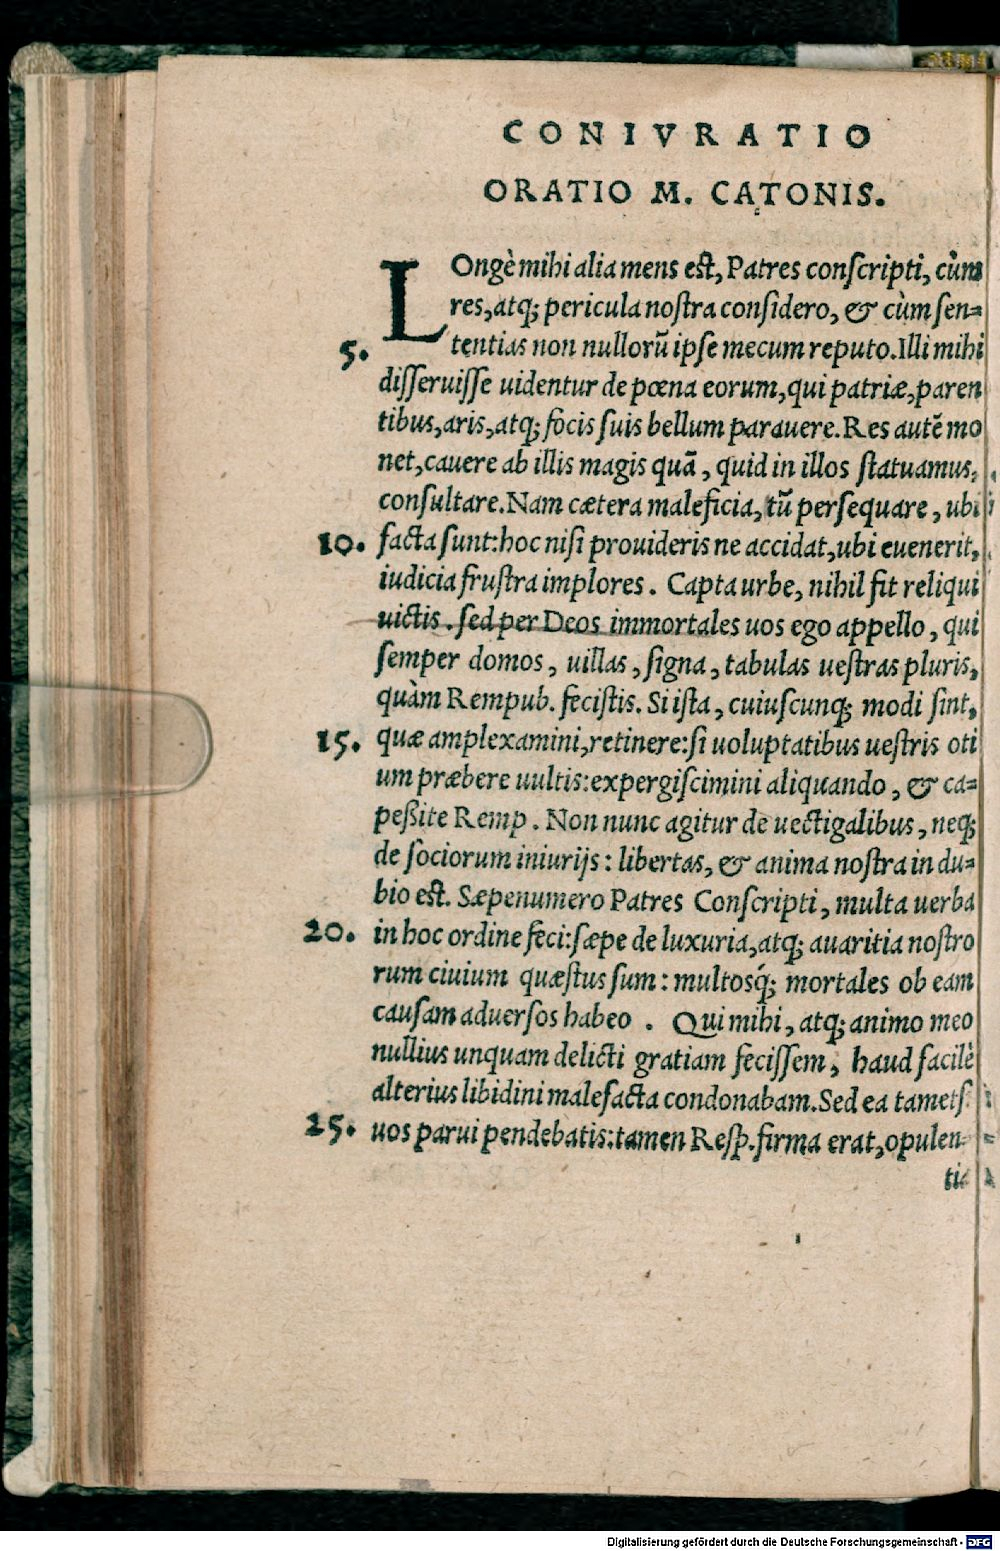 CONIVRATIO
ORATIO M. CATONIS.
LOngè mihi alia mens est, Patres conscripti, cùm
res, atq; pericula nostra considero, & cùm sen=
5. tentias non nullorũ ipse mecum reputo. Illi mihi
disseruisse uidentur de pœna eorum, qui patriæ, paren
tibus, aris, atq; focis suis bellum parauere. Res autẽ mo
net, cauere ab illis magis quã, quid in illos statuamus,
consultare. Nam cætera maleficia, tũ persequare, ubi
10. facta sunt: hoc nisi prouideris ne accidat, ubi euenerit,
iudicia frustra implores. Capta urbe, nihil fit reliqui
uictis. sed per Deos immortales uos ego appello, qui
semper domos, uillas, signa, tabulas uestras pluris,
quàm Rempub. fecistis. Si ista, cuiuscunq; modi sint,
15. quæ amplexamini, retinere: si uoluptatibus uestris oti
um præbere uultis: expergiscimini aliquando, & ca=
peßite Remp. Non nunc agitur de uectigalibus, neq;
de sociorum iniurijs: libertas, & anima nostra in du=
bio est. Sæpenumero Patres Conscripti, multa uerba
20. in hoc ordine feci: sæpe de luxuria, atq; auaritia nostro
rum ciuium quæstus sum: multosq́; mortales ob eam
causam aduersos habeo. Qui mihi, atq; animo meo
nullius unquam delicti gratiam fecissem, haud facilè
alterius libidini malefacta condonabam. Sed ea tamets
25. uos parui pendebatis: tamen Resp. firma erat, opulen=
tia
Digitalisierung gefördert durch die Deutsche Forschungsgemeinschaft - DFG